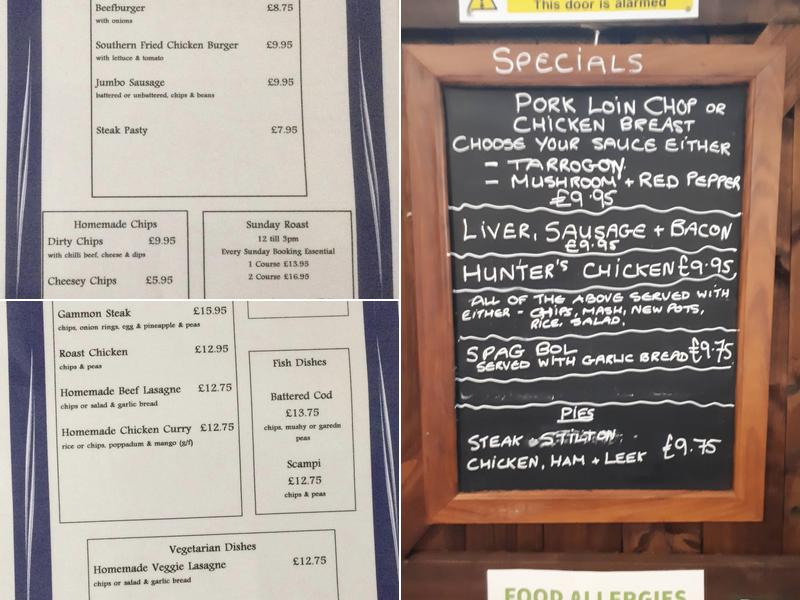 Beefburger £8.75
with onions
Southern Fried Chicken Burger £9.95
with lettuce & tomato
Jumbo Sausage £9.95
battered or unbattered, chips & beans
Steak Pasty £7.95
Homemade Chips
Dirty Chips £9.95
with chilli beef, cheese & dips
Cheesey Chips £5.95
Sunday Roast
12 till 3pm
Every Sunday Booking Essential
1 Course £13.95
2 Course £16.95
Gammon Steak £15.95
chips, onion rings, egg & pineapple & peas
Roast Chicken £12.95
chips & peas
Homemade Beef Lasagne £12.75
chips or salad & garlic bread
Homemade Chicken Curry £12.75
rice or chips, poppadum & mango (g/f)
Fish Dishes
Battered Cod
£13.75
chips, mushy or garedn
peas
Scampi
£12.75
chips & peas
Vegetarian Dishes
Homemade Veggie Lasagne £12.75
chips or salad & garlic bread
This door is alarmed
SPECIALS
PORK LOIN CHOP OR
CHICKEN BREAST
CHOOSE YOUR SAUCE EITHER
- TARROGON
- MUSHROOM + RED PEPPER
£9.95
LIVER, SAUSAGE + BACON
£9.95
HUNTER'S CHICKEN £9.95
ALL OF THE ABOVE SERVED WITH
EITHER - CHIPS, MASH, NEW POTS,
RICE, SALAD.
SPAG BOL £9.75
SERVED WITH GARLIC BREAD
PIES
STEAK + STILTON
CHICKEN, HAM + LEEK £9.75
FOOD ALLERGIES